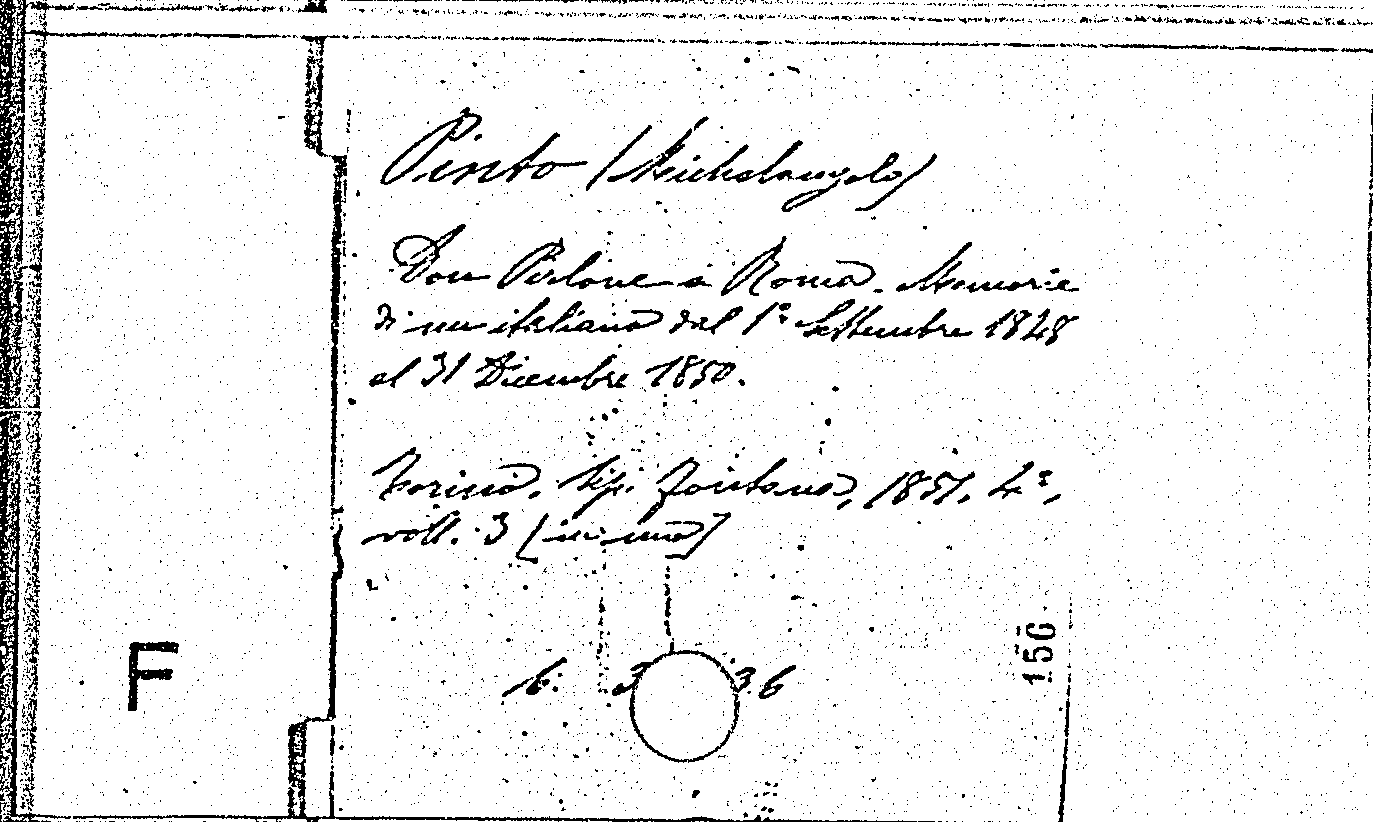 Pinto (Michelangelo)
Don Pirlone a Roma. Memorie
di un italiano dal 1° Settembre 1848
al 31 Dicembre 1850.
Torino, tip. Fontana, 1851, 4°,
voll. 3 [in uno]
F
6. 3 3.6
156